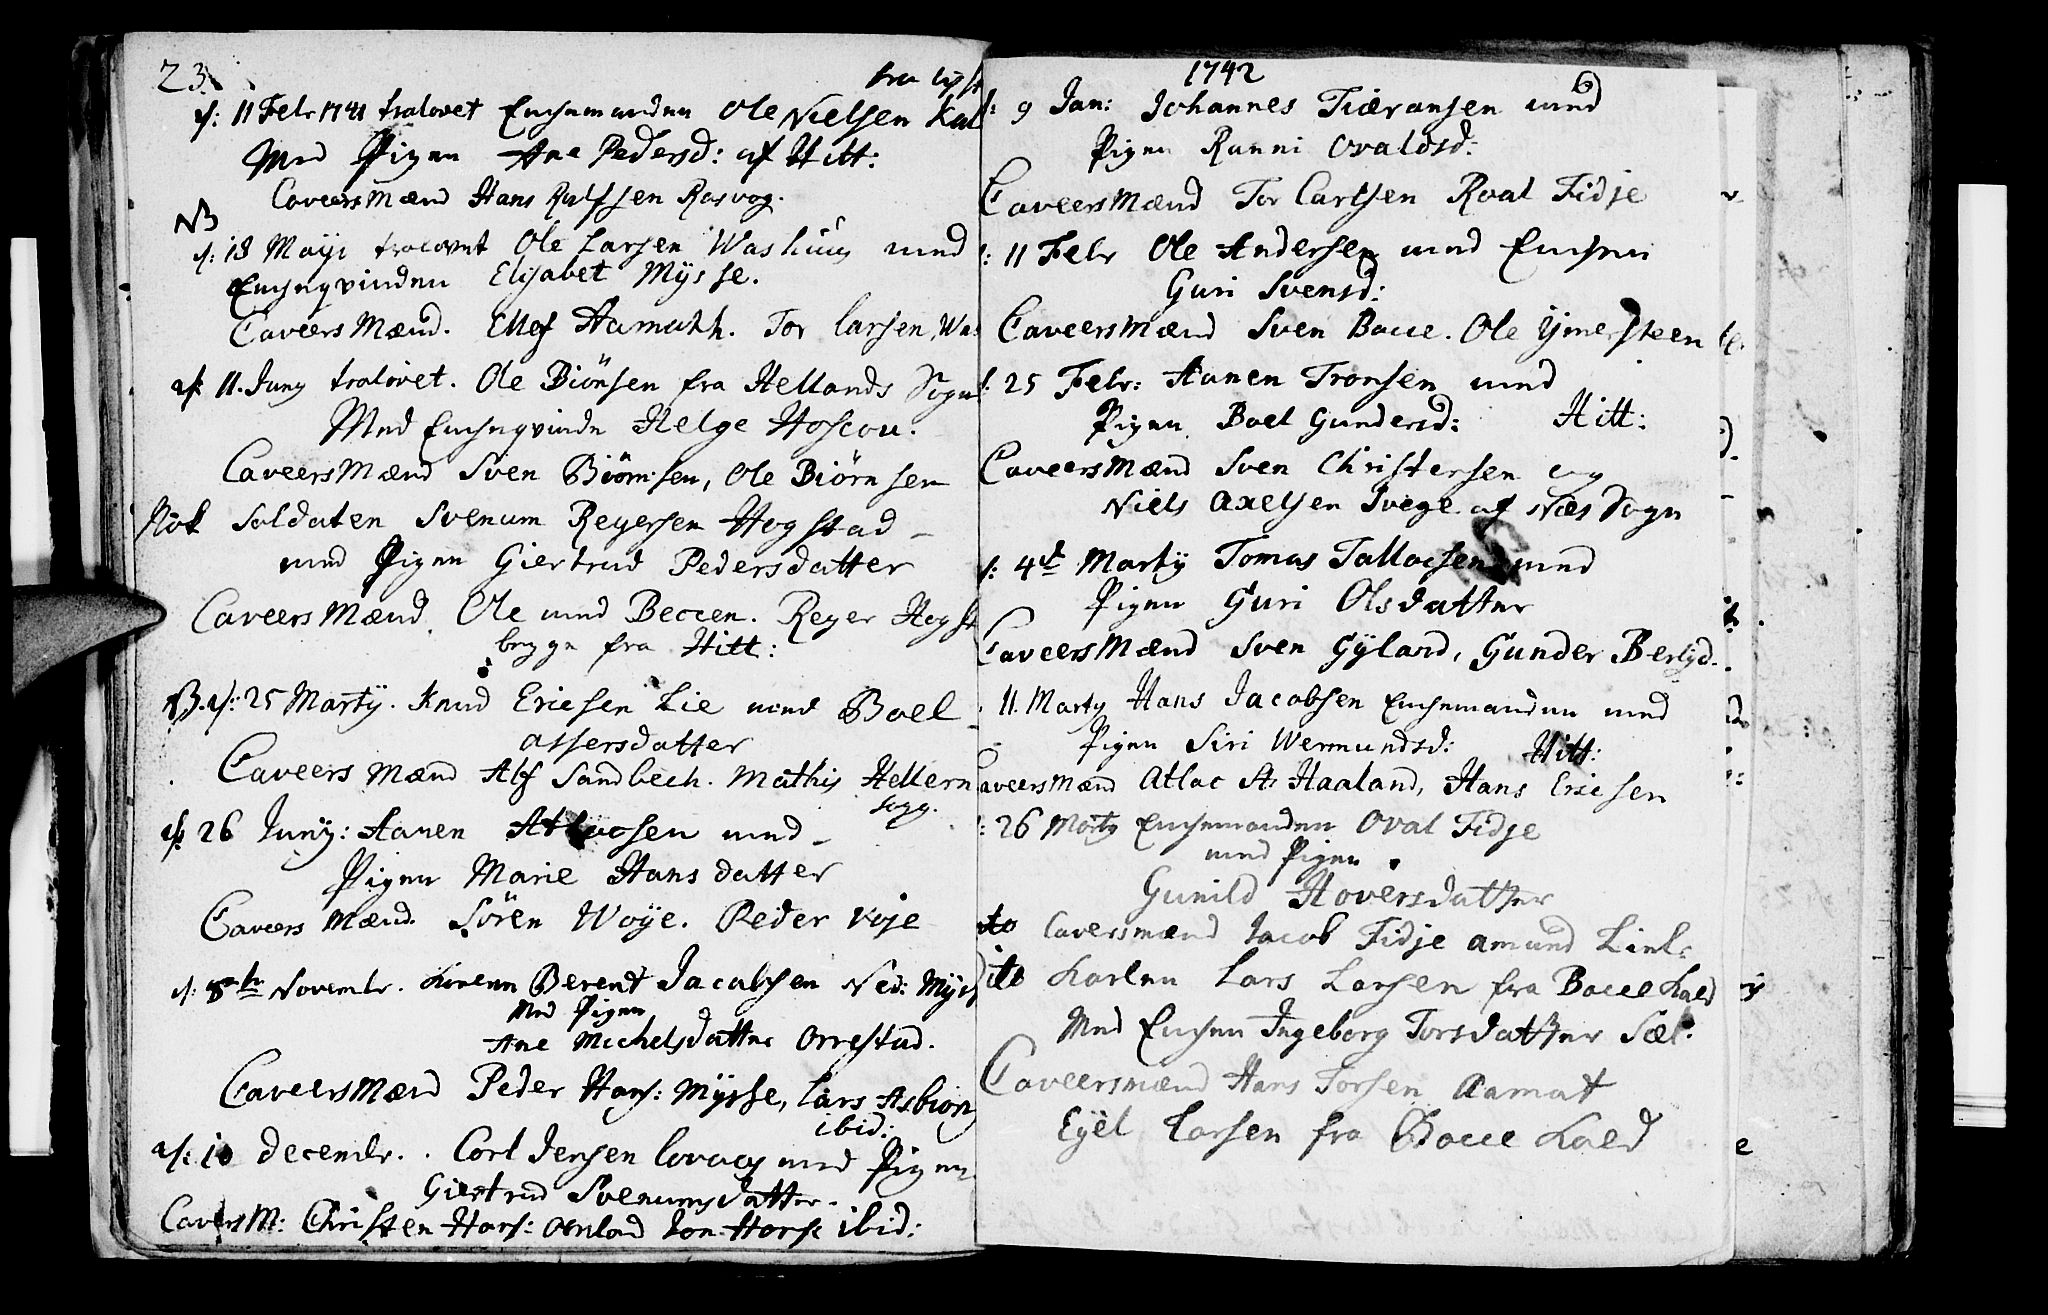 23.
d: 11 Febr 1741 trolovet Enchemanden Ole Nielsen
Med Pigen Ane Pedersd: af Hitt:
Caveersmænd Hans Rasvog.
NB
d: 18 Maji trolovet Ole Larsen med
Encheqvinden Elisabet Mÿsse.
Caveers Mænd. Ellef Tor Larsen
d: 11. Juny trolovet. Ole Biönsen fra Hellands Sogn
Med Encheqvinde Helge
Caveers Mænd Sven Biörnsen, Ole Biörnsen
Nok Soldaten Svenum Reyersen Hogstad
med Pigen Giertrud Pedersdatter
Caveers Mænd. Ole Reyer
begge fra Hitt:
NB. d: 25 Martÿ. Knud Ericsen Lie med Boel
assersdatter
Caveers Mænd Alf Sandbech. Mathis Hellern
sogg.
d: 26 Junÿ: Aanen Atlacsen med
Pigen Marie Hans datter
Caveers Mænd. Sören Woÿe. Peder Voje
d: 8br Novembr. Berent Jacobsen Ned:
Med Pigen
Ane Michelsdatter Orrestad.
Caveersmænd Peder Hans: Mÿsse, Lars
ibid:
d: 10 decembr. Carl Jensen med Pigen
Giertrud Svenumsdatter.
CaversM: Christen Hans: ibid:
1742
d: 9 Jan: Johannes Tiøransen med
Pigen Ranni Ovaldsd:
Caveersmænd Tor Carlsen Roal Fidje
d: 11 Febr Ole Andersen med Enchen
Guri Svensd:
Caveersmænd Sven Bacce. Ole
d: 25 Febr: Aanen Tronsen med
Pigen Boel Gundersd: Hitt:
Caveersmænd Sven Christersen og
Niels Axelsen af Næs Sogn
d: 4de Martÿ Tomas Tallacsen med
Pigen Guri Olsdatter
Caveersmænd Sven Gÿland, Gunder
11. Marty Hans Jacobsen Enchemanden med
Pigen Siri Wermundsd: Hitt:
Caveersmænd Atlac Haaland, Hans Ericsen
26 Marty Enchemanden Oval Fidje
med Pigen
Gunild Hoversdatter
Caversmænd Jacob Fidje Amund
Dito Karlen Lars Larsen fra Bacce Sald
Med Enchen Ingeborg Torsdatter
Caveersmænd Hans Torsen Aamot
Eÿel Larsen fra Bacce Sald